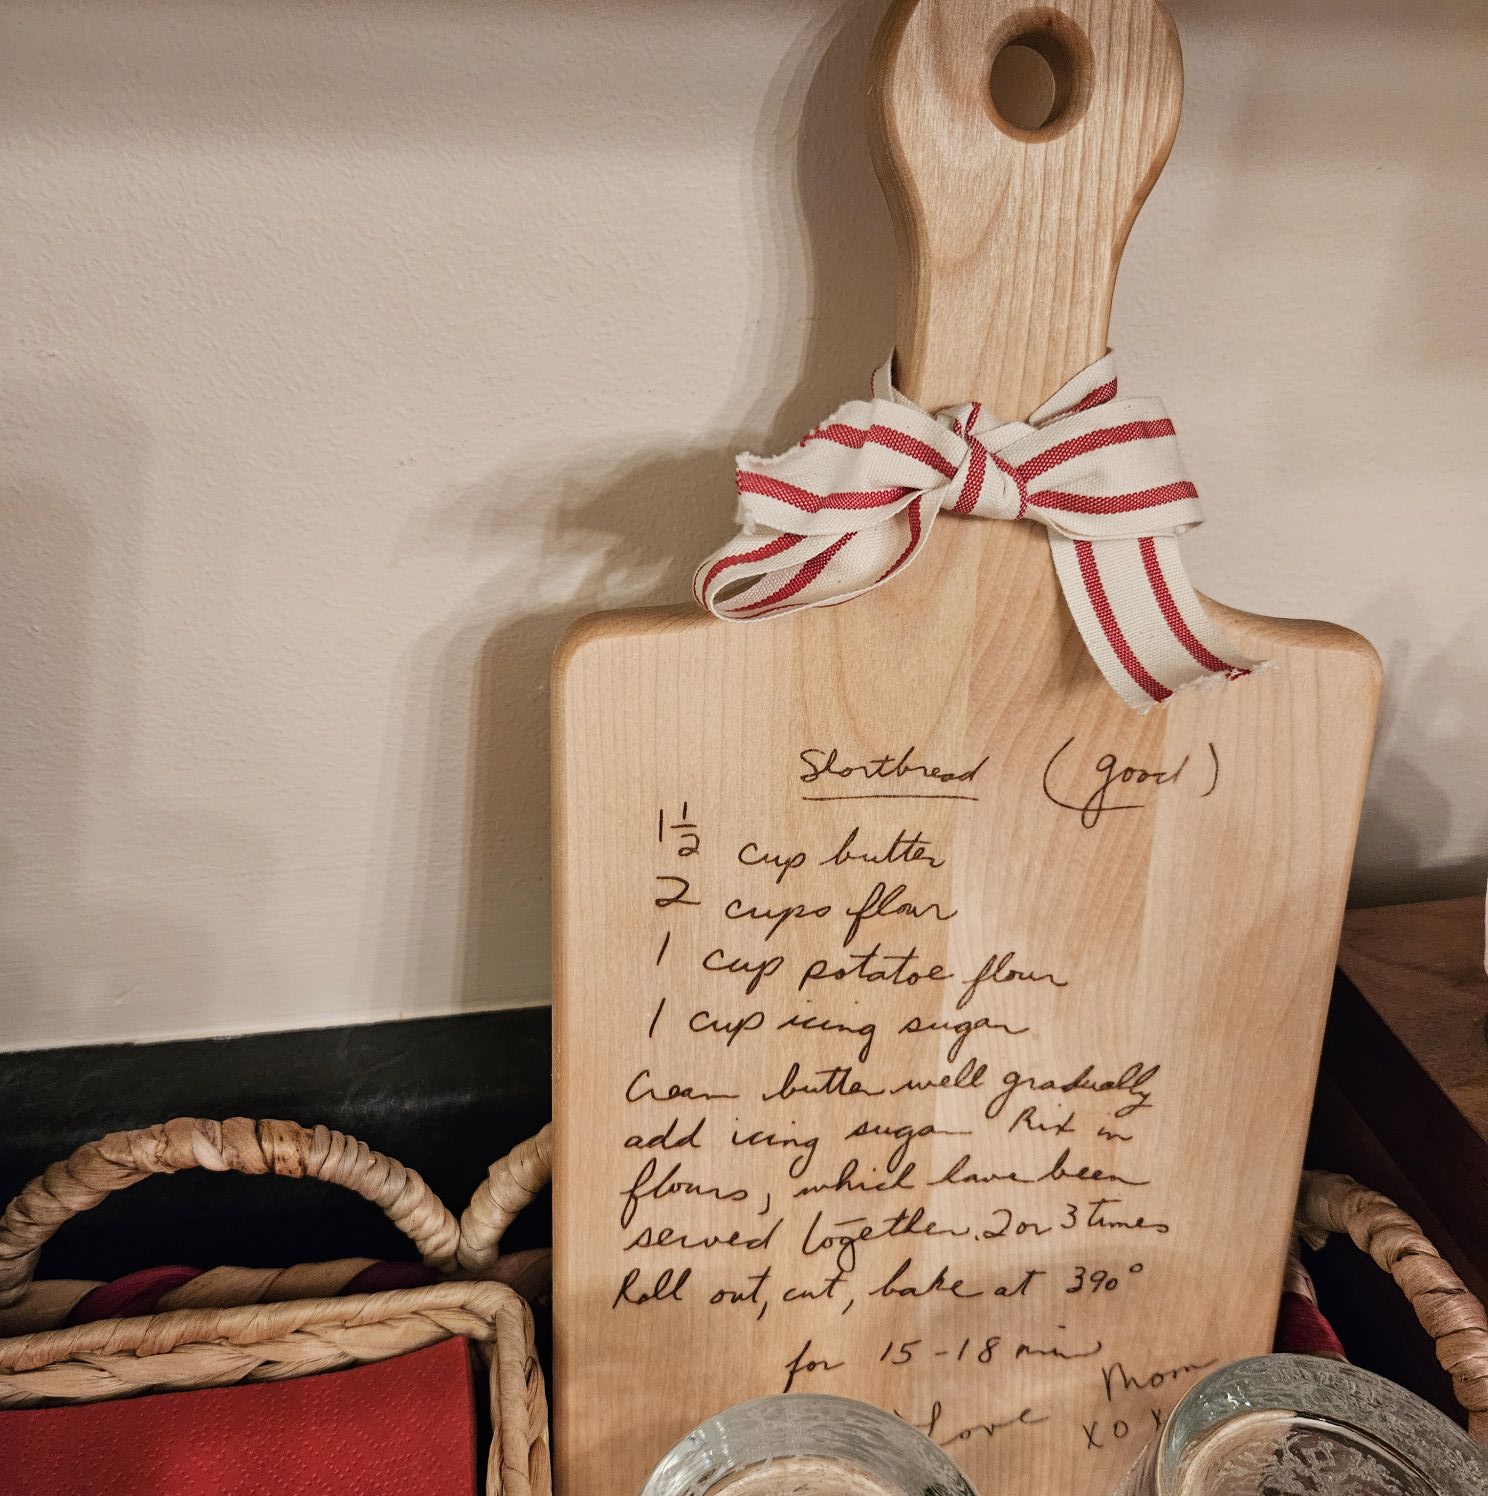 Shortbread (good)
1 1/2 cup butter
2 cups flour
1 cup potatoe flour
1 cup icing sugar
Cream butter well gradually
add icing sugar Mix in
flours, which have been
served together. 2 or 3 times
Roll out, cut, bake at 390°
for 15-18 min
Love Mom
xox